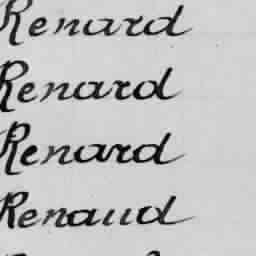 Renard
Renard
Renard
Renaud